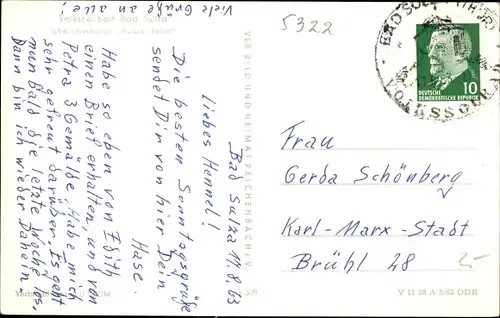 Viele Grüße an alle!
Volksheilbad Bad Sulza
5322
Bad Sulza 11.8.63
Liebes Hennel!
Die besten Sonntagsgrüße
sendet Dir von hier Dein
Hase.
Habe so eben von Edith
einen Brief erhalten, und von
Petra 3 Gemälde. Habe mich
sehr gefreut darüber. Es geht
nun bald die letzte Woche los,
Dann bin ich wieder Daheim.
VEB BILD UND HEIMAT REICHENBACH I. V.
BAD SULZA (THÜR)
10
DEUTSCHE
DEMOKRATISCHE REPUBLIK
Frau
Gerda Schönberg
Karl-Marx-Stadt
Brühl 28
V 11 28 A 3/63 DDR